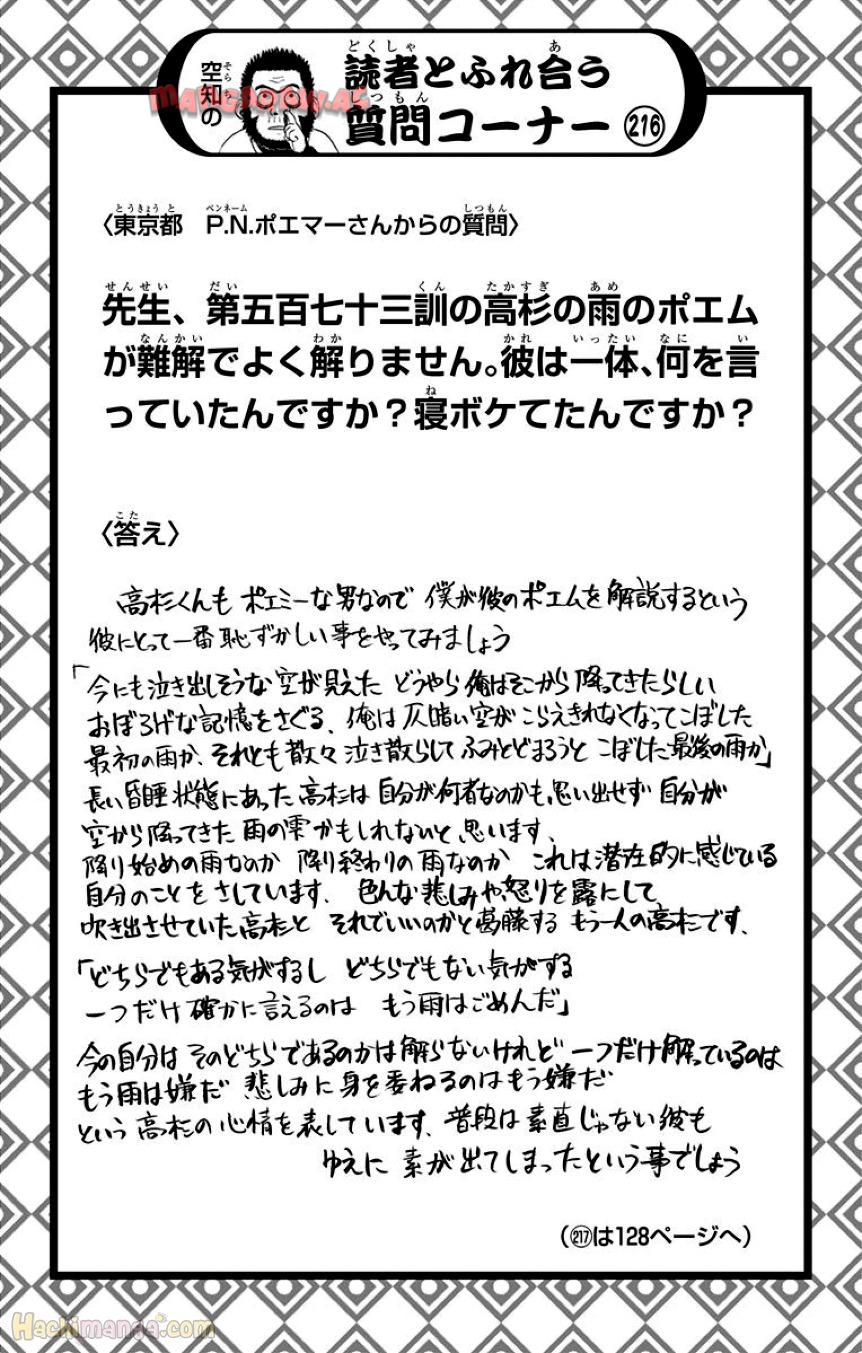 空知の
読者とふれ合う
質問コーナー 216
〈東京都 P.N.ポエマーさんからの質問〉
先生、第五百七十三訓の高杉の雨のポエム
が難解でよく解りません。彼は一体、何を言
っていたんですか？寝ボケてたんですか？
〈答え〉
高杉くんも ポエミーな男なので 僕が彼のポエムを解説するという
彼にとって一番恥ずかしい事をやってみましょう
「今にも泣き出しそうな空が見えた どうやら俺はそこから降ってきたらしい
おぼろげな記憶をさぐる、俺は仄暗い空が こらえきれなくなってこぼした
最初の雨か、それとも散々泣き散らして ふみとどまろうと こぼした最後の雨か」
長い昏睡状態にあった高杉は 自分が何者なのかも思い出せず 自分が
空から降ってきた 雨の雫かもしれないと思います、
降り始めの雨なのか 降り終わりの雨なのか これは潜在的に感じている
自分のことをさしています、色んな悲しみや怒りを露にして
吹き出させていた高杉と それでいいのかと葛藤する もう一人の高杉です、
「どちらでもある気がするし どちらでもない気がする
一つだけ確かに言えるのは もう雨はごめんだ」
今の自分は そのどちらであるのかは解らないけれど 一つだけ解っているのは
もう雨は嫌だ 悲しみに身を委ねるのはもう嫌だ
という 高杉の心情を表しています、普段は素直じゃない彼も
ゆえに 素が出てしまったという事でしょう
（217は128ページへ）
Hachimanga.com